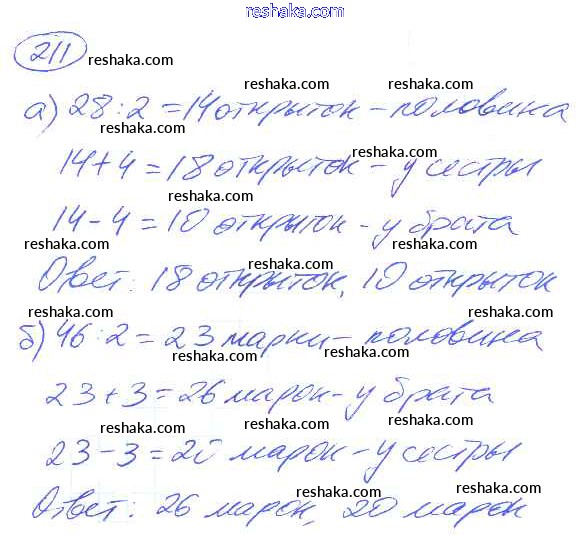 reshaka.com
211 reshaka.com
reshaka.com reshaka.com
а) 28:2=14 открыток - половина
reshaka.com reshaka.com
reshaka.com
14+4=18 открыток - у сестры
reshaka.com
14-4=10 открыток - у брата
reshaka.com reshaka.com
reshaka.com
Ответ: 18 открыток, 10 открыток
reshaka.com reshaka.com
б) 46:2=23 марки - половина
reshaka.com reshaka.com
reshaka.com
23+3=26 марок - у брата
reshaka.com
reshaka.com
23-3=20 марок - у сестры
reshaka.com
reshaka.com reshaka.com
Ответ: 26 марок, 20 марок
reshaka.com